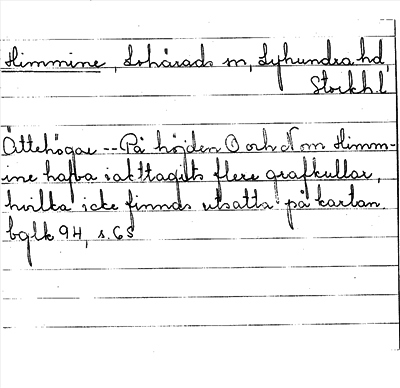 Himmine, Lohärads sn, Lyhundra hd,
Stockh.l
Ättehögar -- På höjden O och N om Himm-
ine hafva iakttagits flere grafkullar,
hvilka icke finnas utsatta på kartan
bglk 94, s. 65